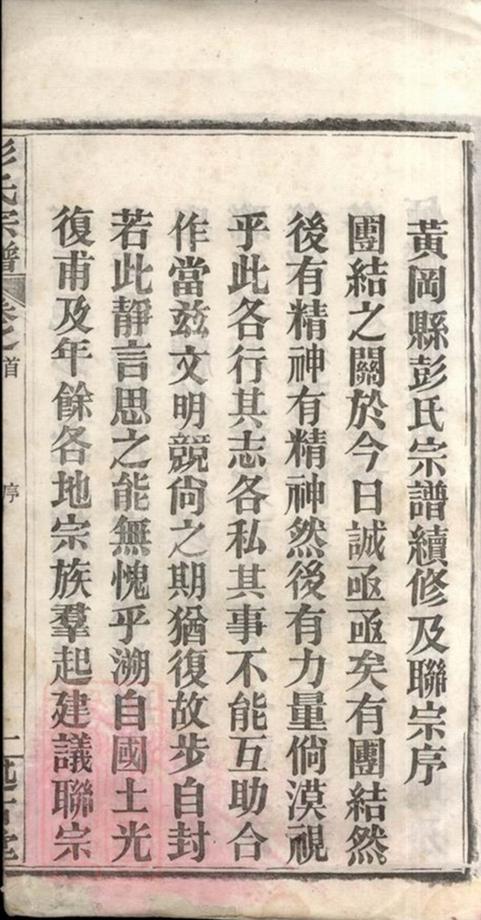 黃岡縣彭氏宗譜續修及聯宗序
團結之關於今日誠亟亟矣有團結然
後有精神有精神然後有力量倘漠視
乎此各行其志各私其事不能互助合
作當兹文明競尙之期猶復故步自封
若此靜言思之能無愧乎溯自國土光
復甫及年餘各地宗族羣起建議聯宗
彭氏宗譜
卷之首
序
一